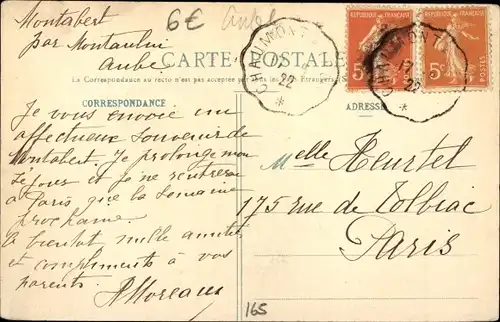 Montabert
par Montaulin
Aube
6€ Aube
CARTE POSTALE
La Correspondance au recto n'est pas acceptée par
CORRESPONDANCE
ADRESSE
CHAUMONT
22
*
REPUBLIQUE FRANÇAISE
5c
POSTES
CHAUMONT
22
*
Je vous envoie un
affectueux souvenir de
Montabert. Je prolonge mon
séjour et je ne rentrerai
à Paris que la semaine
prochaine.
A bientôt mille amitiés
et compliments à vos
parents.
AMoreaux
Melle Heurtel
175 rue de Tolbiac
Paris
165